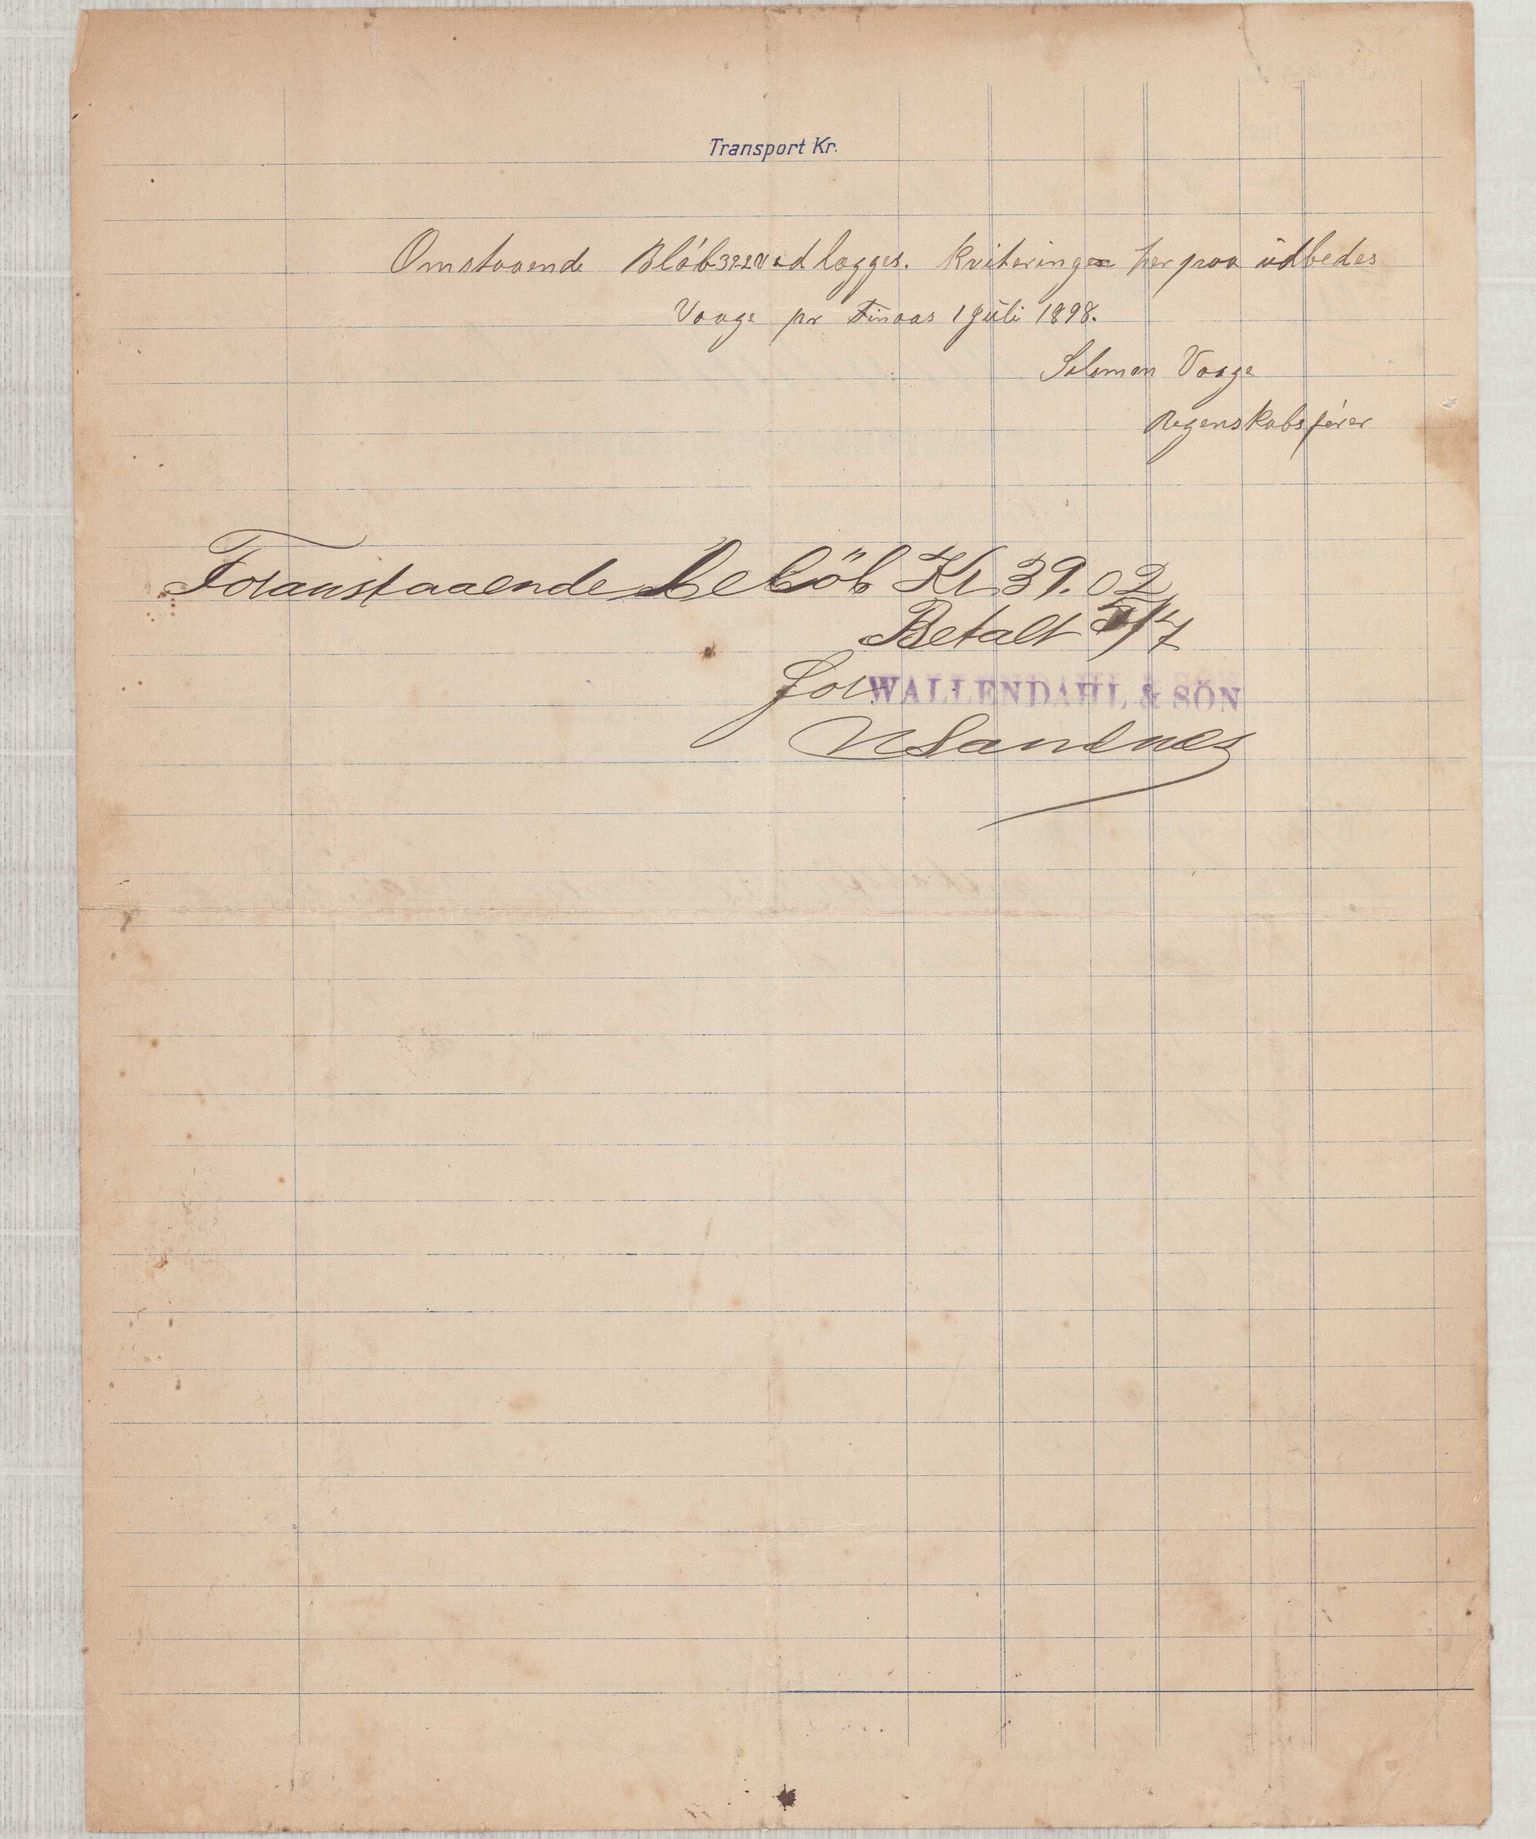 Transport Kr.
Omstaaende Bløb 3922 vedlægges. Kvitering herpaa udbedes
Vaage pr Finaas 1 Juli 1898.
Salomon Vaage
Regenskabsfører
Foranstaaende belöb Kr 39.02
Betalt 5/7
for WALLENDAHL & SÖN
N Sandnes